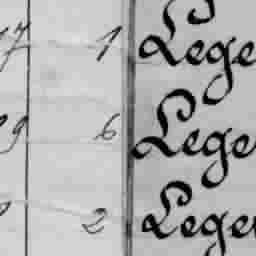 7 1 Lege
9 6 Lege
2 Lege